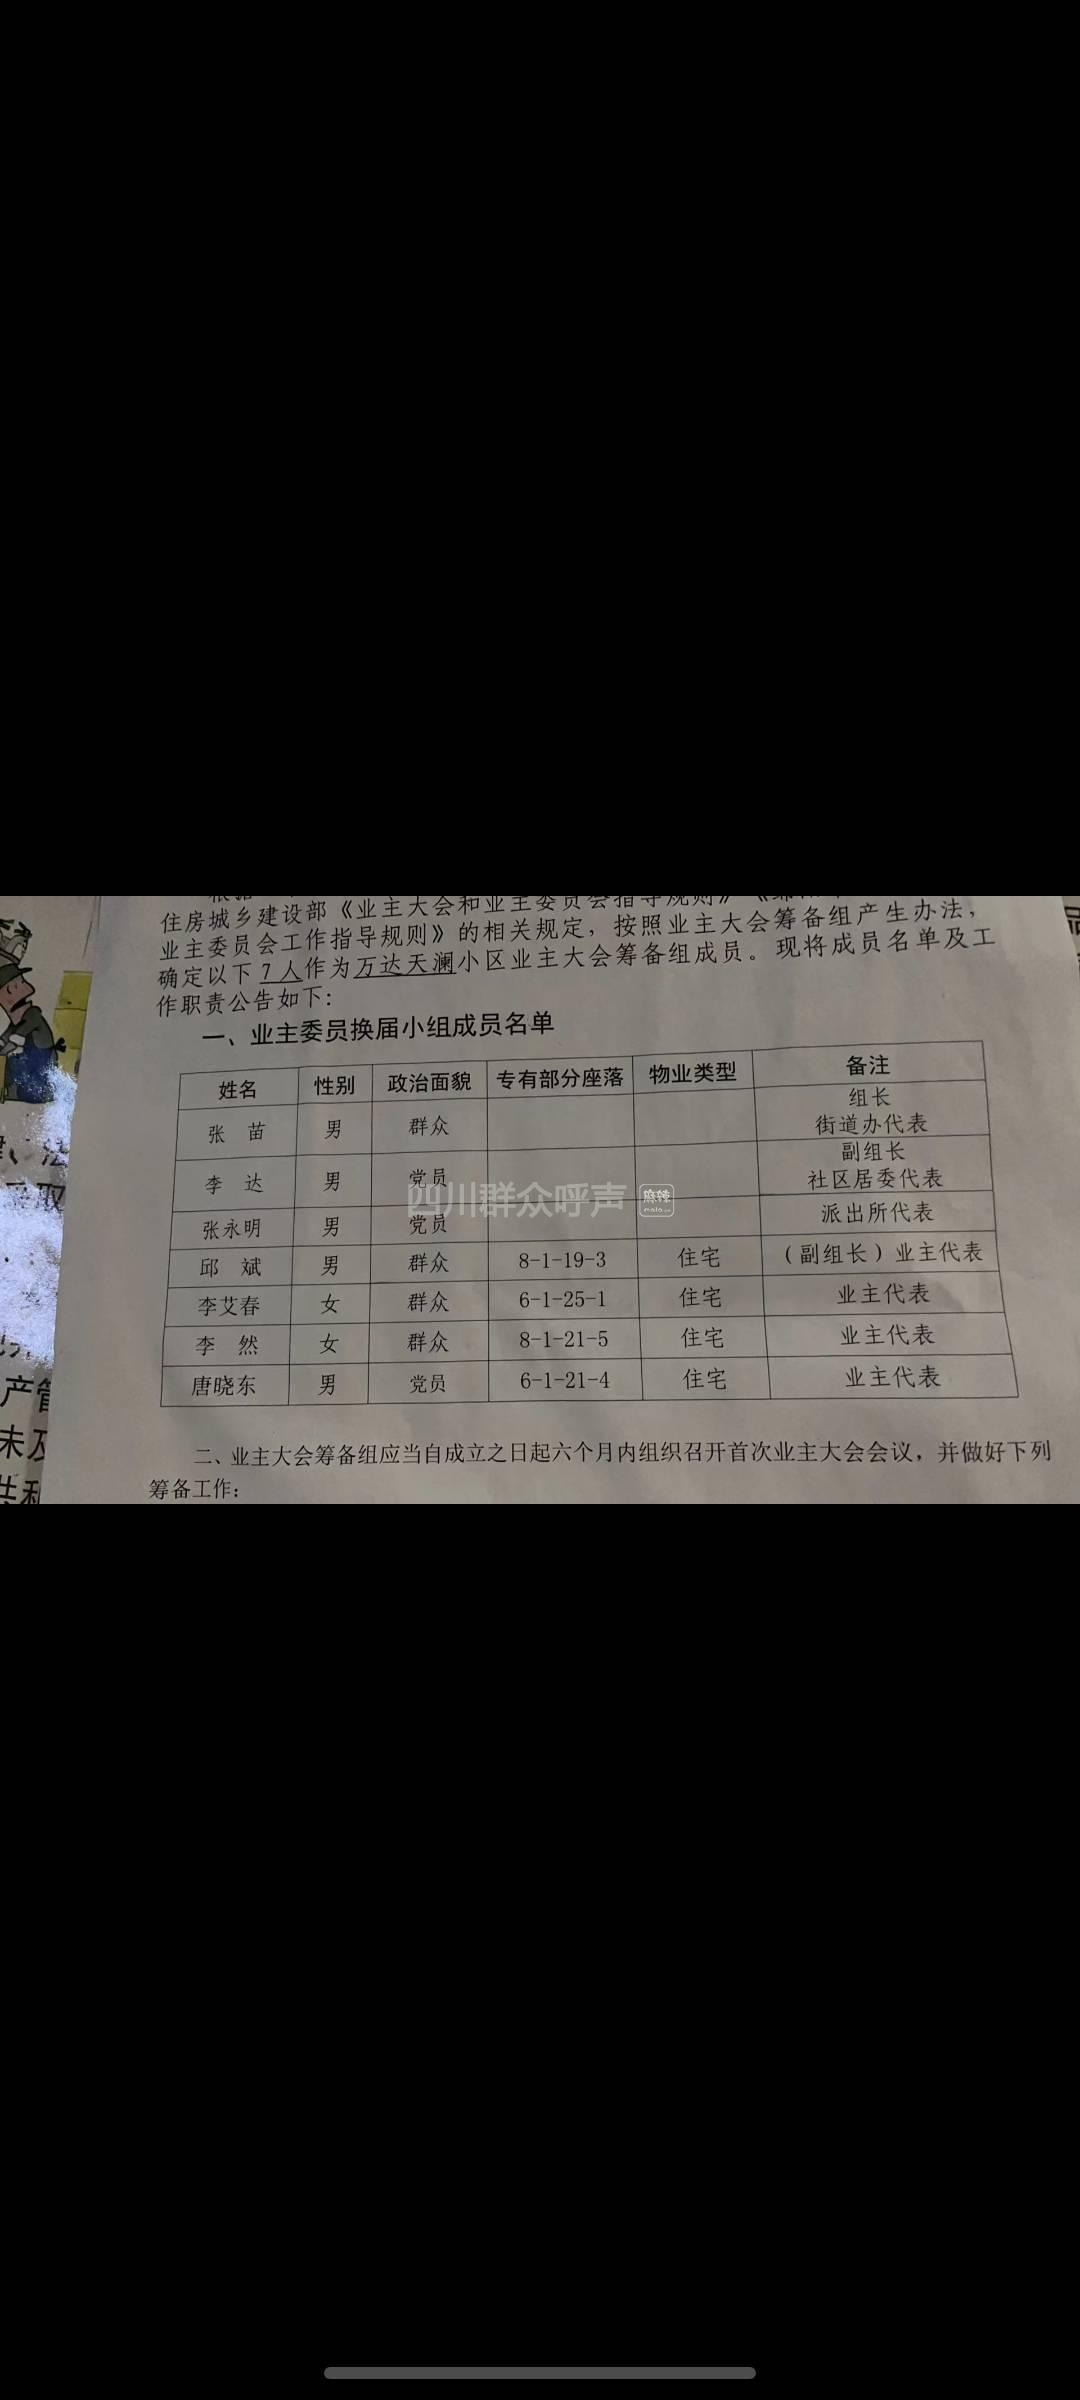 住房城乡建设部《业主大会和业主委员会指导规则》
业主委员会工作指导规则》的相关规定，按照业主大会筹备组产生办法，
确定以下7人作为万达天澜小区业主大会筹备组成员。现将成员名单及工
作职责公告如下：
一、业主委员换届小组成员名单
姓名 性别 政治面貌 专有部分座落 物业类型 备注
张 苗 男 群众 组长
街道办代表
李 达 男 党员 副组长
社区居委代表
张永明 男 党员 派出所代表
邱 斌 男 群众 8-1-19-3 住宅 （副组长）业主代表
李艾春 女 群众 6-1-25-1 住宅 业主代表
李 然 女 群众 8-1-21-5 住宅 业主代表
唐晓东 男 党员 6-1-21-4 住宅 业主代表
四川群众呼声 麻辣
二、业主大会筹备组应当自成立之日起六个月内组织召开首次业主大会会议，并做好下列
筹备工作：
法
取
产管
未及